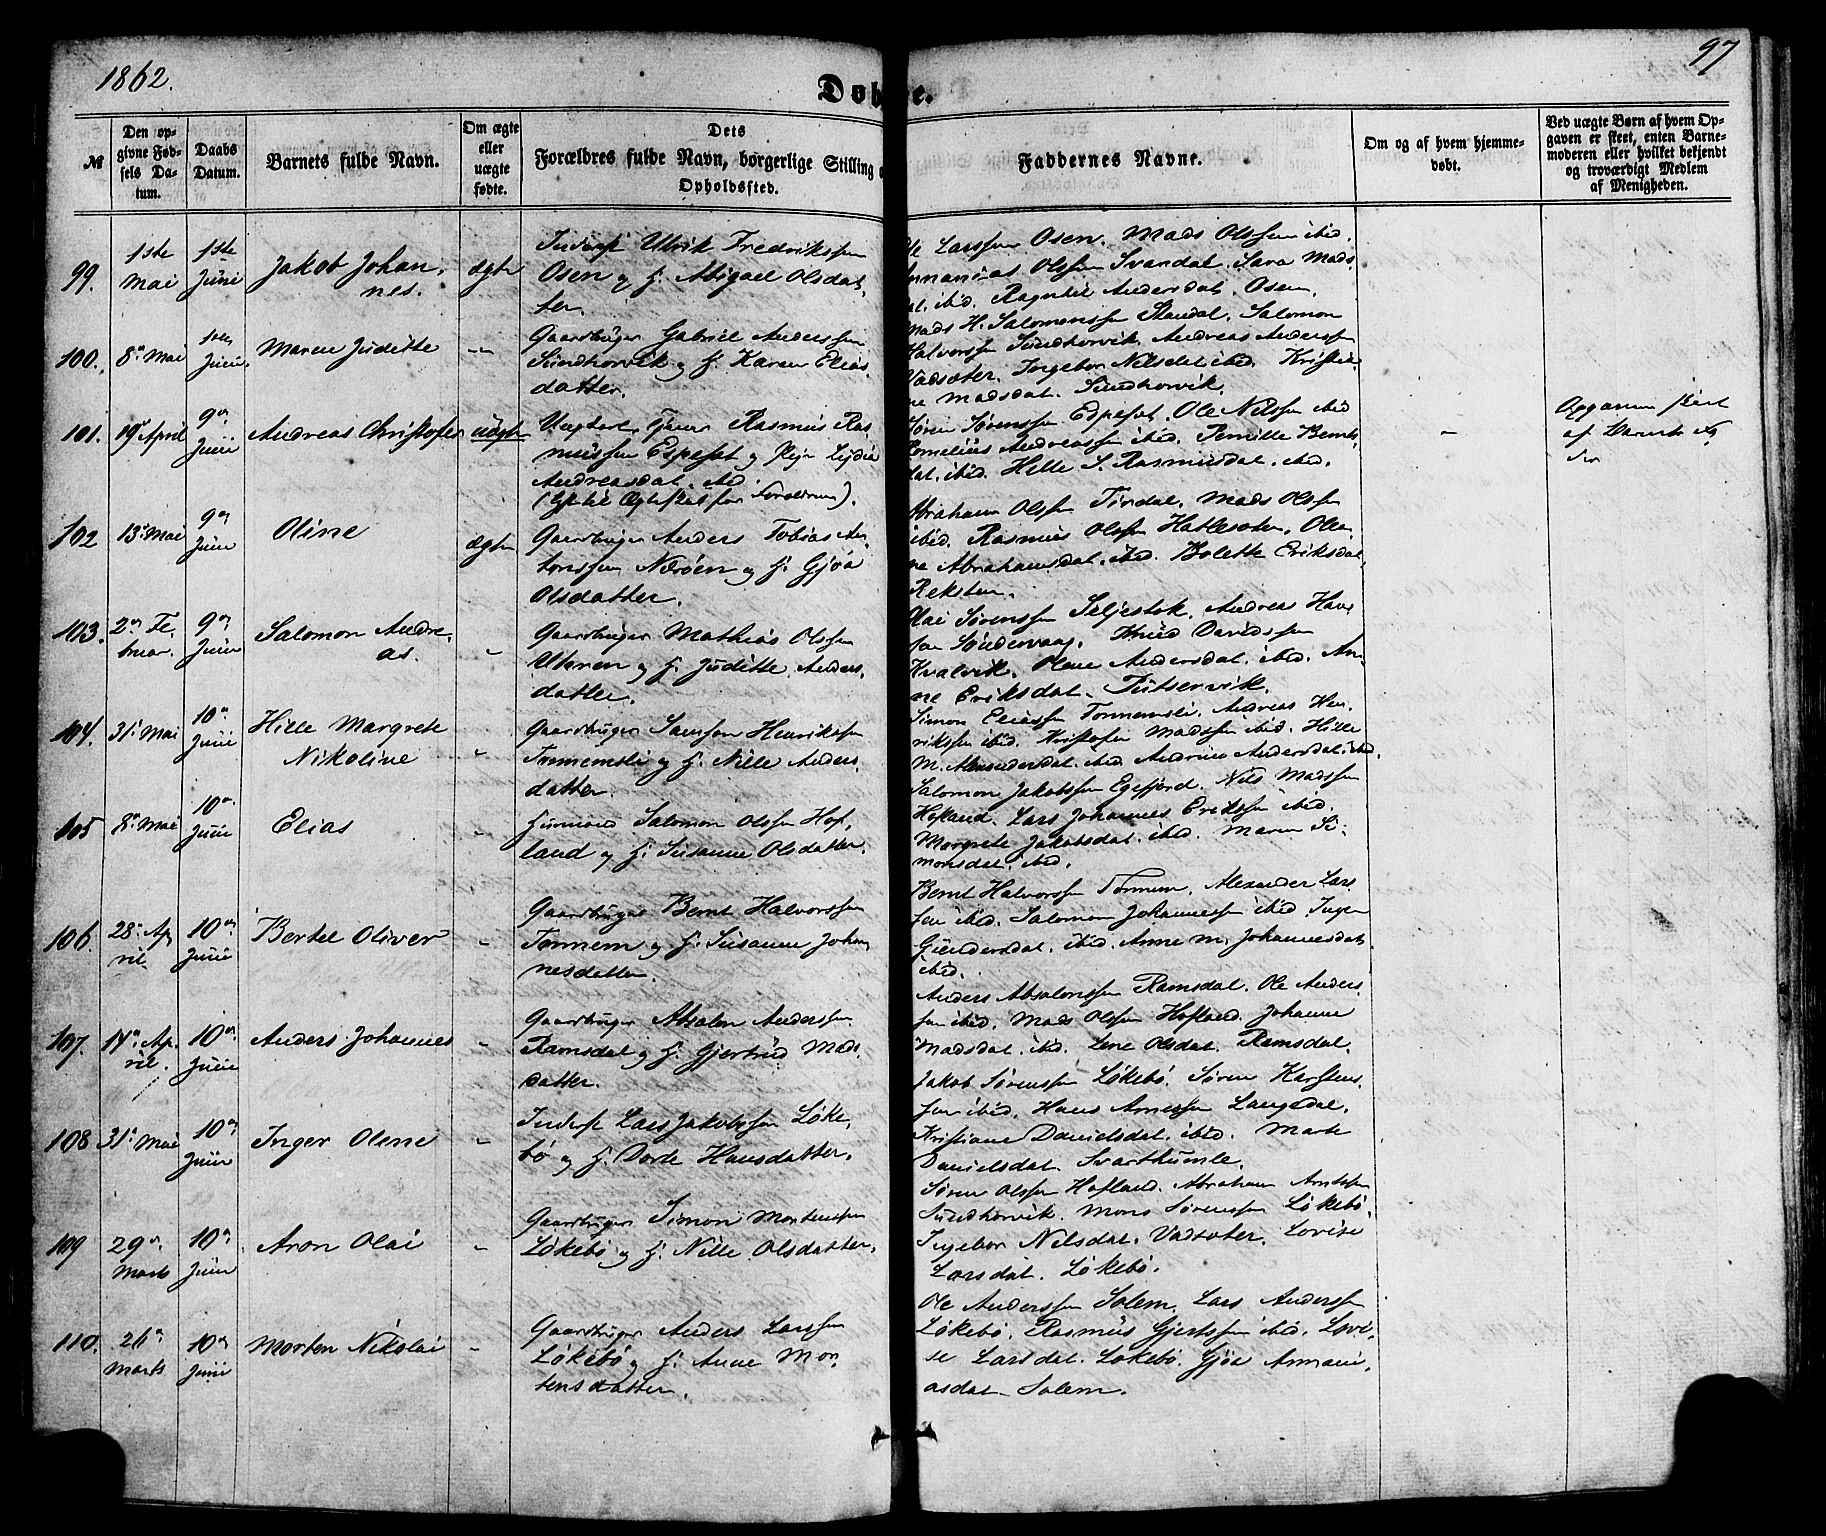 1862.
97
Døbte.
№
Den op-
givne Fød-
sels Da-
tum.
Daabs
Datum.
Barnets fulde Navn.
Om ægte
eller
uægte
fødte.
Dets
Forældres fulde Navn, borgerlige Stilling o
Opholdssted.
Faddernes Navne.
Om og af hvem hjemme-
døbt.
Ved uægte Børn af hvem Op-
gaven er skeet, enten Barne-
moderen eller hvilket bekjendt
og troværdigt Medlem
af Menigheden.
99.
1ste
Mai
1ste
Juni
Jakob Johan-
nes.
ægte
Inderst Ulrik Fredrikssen
Osen og H. Abigael Olsdat-
ter.
Ole Larssen Osen. Mads Olssen ibid.
Annanias Olssen Svardal. Sara Mads-
dat. ibid. Ragnhil Andersdat. Osen.
100.
8de Mai
1ste
Juni
Maren Juditte
"
Gaardbruger Gabriel Anderssen
Sundhorvik og H. Karen Elias-
datter.
Mads H. Salomonssen Standal. Salomon
Halvorssen Sundhorvik. Andreas Anderssen
Vadsøter. Ingebor Nilsdat ibid. Kristia-
ne Madsdat. Sundhorvik.
101.
19de April
9de
Juni
Andreas Christofer
uægte
Ungkarl Rasmus Ras-
mussen Espeset og Pige Lydia
Andreasdat. ibid.
Søren Sørenssen Espeset. Ole Nilssen ibid
Cornelius Andreassen ibid. Pernille Bernts-
dat. ibid. Hille S. Rasmusdat. ibid.
Opgaven skeet
af Barnets
102
13de Mai
9de
Juni
Oline
ægte
Gaardbruger Anders Tobias An-
tonssen Nærøen og H. Gjøa
Olsdatter.
Abraham Olssen Tirdal. Mads Olssen
ibid. Rasmus Olssen Hatlesøter. Ole-
ne Abrahamsdat. ibid. Bolette Eriksdat.
Reksten.
103.
2den Fe-
bruar.
9de
Juni
Salomon Andre-
as.
"
Gaardbruger Mathias Olssen
og H. Juditte Anders-
datter.
Nai Sørenssen Seljestok. Andreas Hans-
sen Søndervaag. Knud Davidssen
Kvalvik. Olene Andersdat. ibid. An-
ne Eriksdat.
104.
31te Mai
10de
Juni
Hille Margrete
Nikoline
"
Gaardbruger Samson Henrikssen
Tonnemsli og H. Nille Anders-
datter.
Simon Eliassen Tonnemsli. Andreas Hen-
rikssen ibid. Kristofer Madssen ibid. Hille
M. Alexandersdat. ibid Andrine Andersdat. ibid.
105
8de Mai
10de
Juni
Elias
"
Husmand Salomon Olssen Hof-
land og H. Susanne Olsdatter.
Salomon Jakobssen Egefjord. Nils Madssen
Hofland. Lars Johannes Erikssen ibid.
Margrete Jakobsdat. ibid. Maren Si-
monsdat. ibid.
106.
28de Ap-
ril
10de
Juni
Bertel Oliver
"
Gaardbruger Bernt Halvorssen
Tonnem og H. Susanne Johan-
nesdatter.
Bernt Halvorssen Tonnem. Alexander Lars-
sen ibid. Salomon Johannessen ibid. Inger
Gundersdat. ibid. Anne M. Johannesdat.
ibid.
107.
14de Ap-
ril.
10de
Juni
Anders Johannes
"
Gaardbruger Absalon Anderssen
Ramsdal og H. Gjertrud Mads-
datter.
Anders Absalonssen Ramsdal. Ole Anders-
sen ibid. Mads Olssen Hofland. Johanne
Madsdat. ibid. Lene Olsdat. Ramsdal.
108
31te Mai
10de
Juni
Inger Olene
"
Inderst Lars Jakobssen Løke-
bø og H. Dorte Hansdatter.
Jakob Sørenssen Løkebø. Søren Karstens-
sen ibid. Hans Arnessen Langedal.
Kristiane Danielsdat. ibid. Marte
Danielsdat. Svarthumle.
109
29de
Marts
10de
Juni
Aron Olai
"
Gaardbruger Simon Mortenssen
Løkebø og H. Nille Olsdatter.
Søren Olssen Hofland. Abraham Arntssen
Sundhorvik. Mons Sørenssen Løkebø.
Ingebor Nilsdat. Vadsøter. Lovise
Larsdat. Løkebø.
110.
26de
Marts
10de
Juni
Morten Nikolai
"
Gaardbruger Anders Larssen
Løkebø og H. Anne Mor-
tensdatter.
Ole Anderssen Solem. Lars Anderssen
Løkebø. Rasmus Gjertssen ibid. Lovi-
se Larsdat. Løkebø. Gjøa Annani-
asdat. Solem.